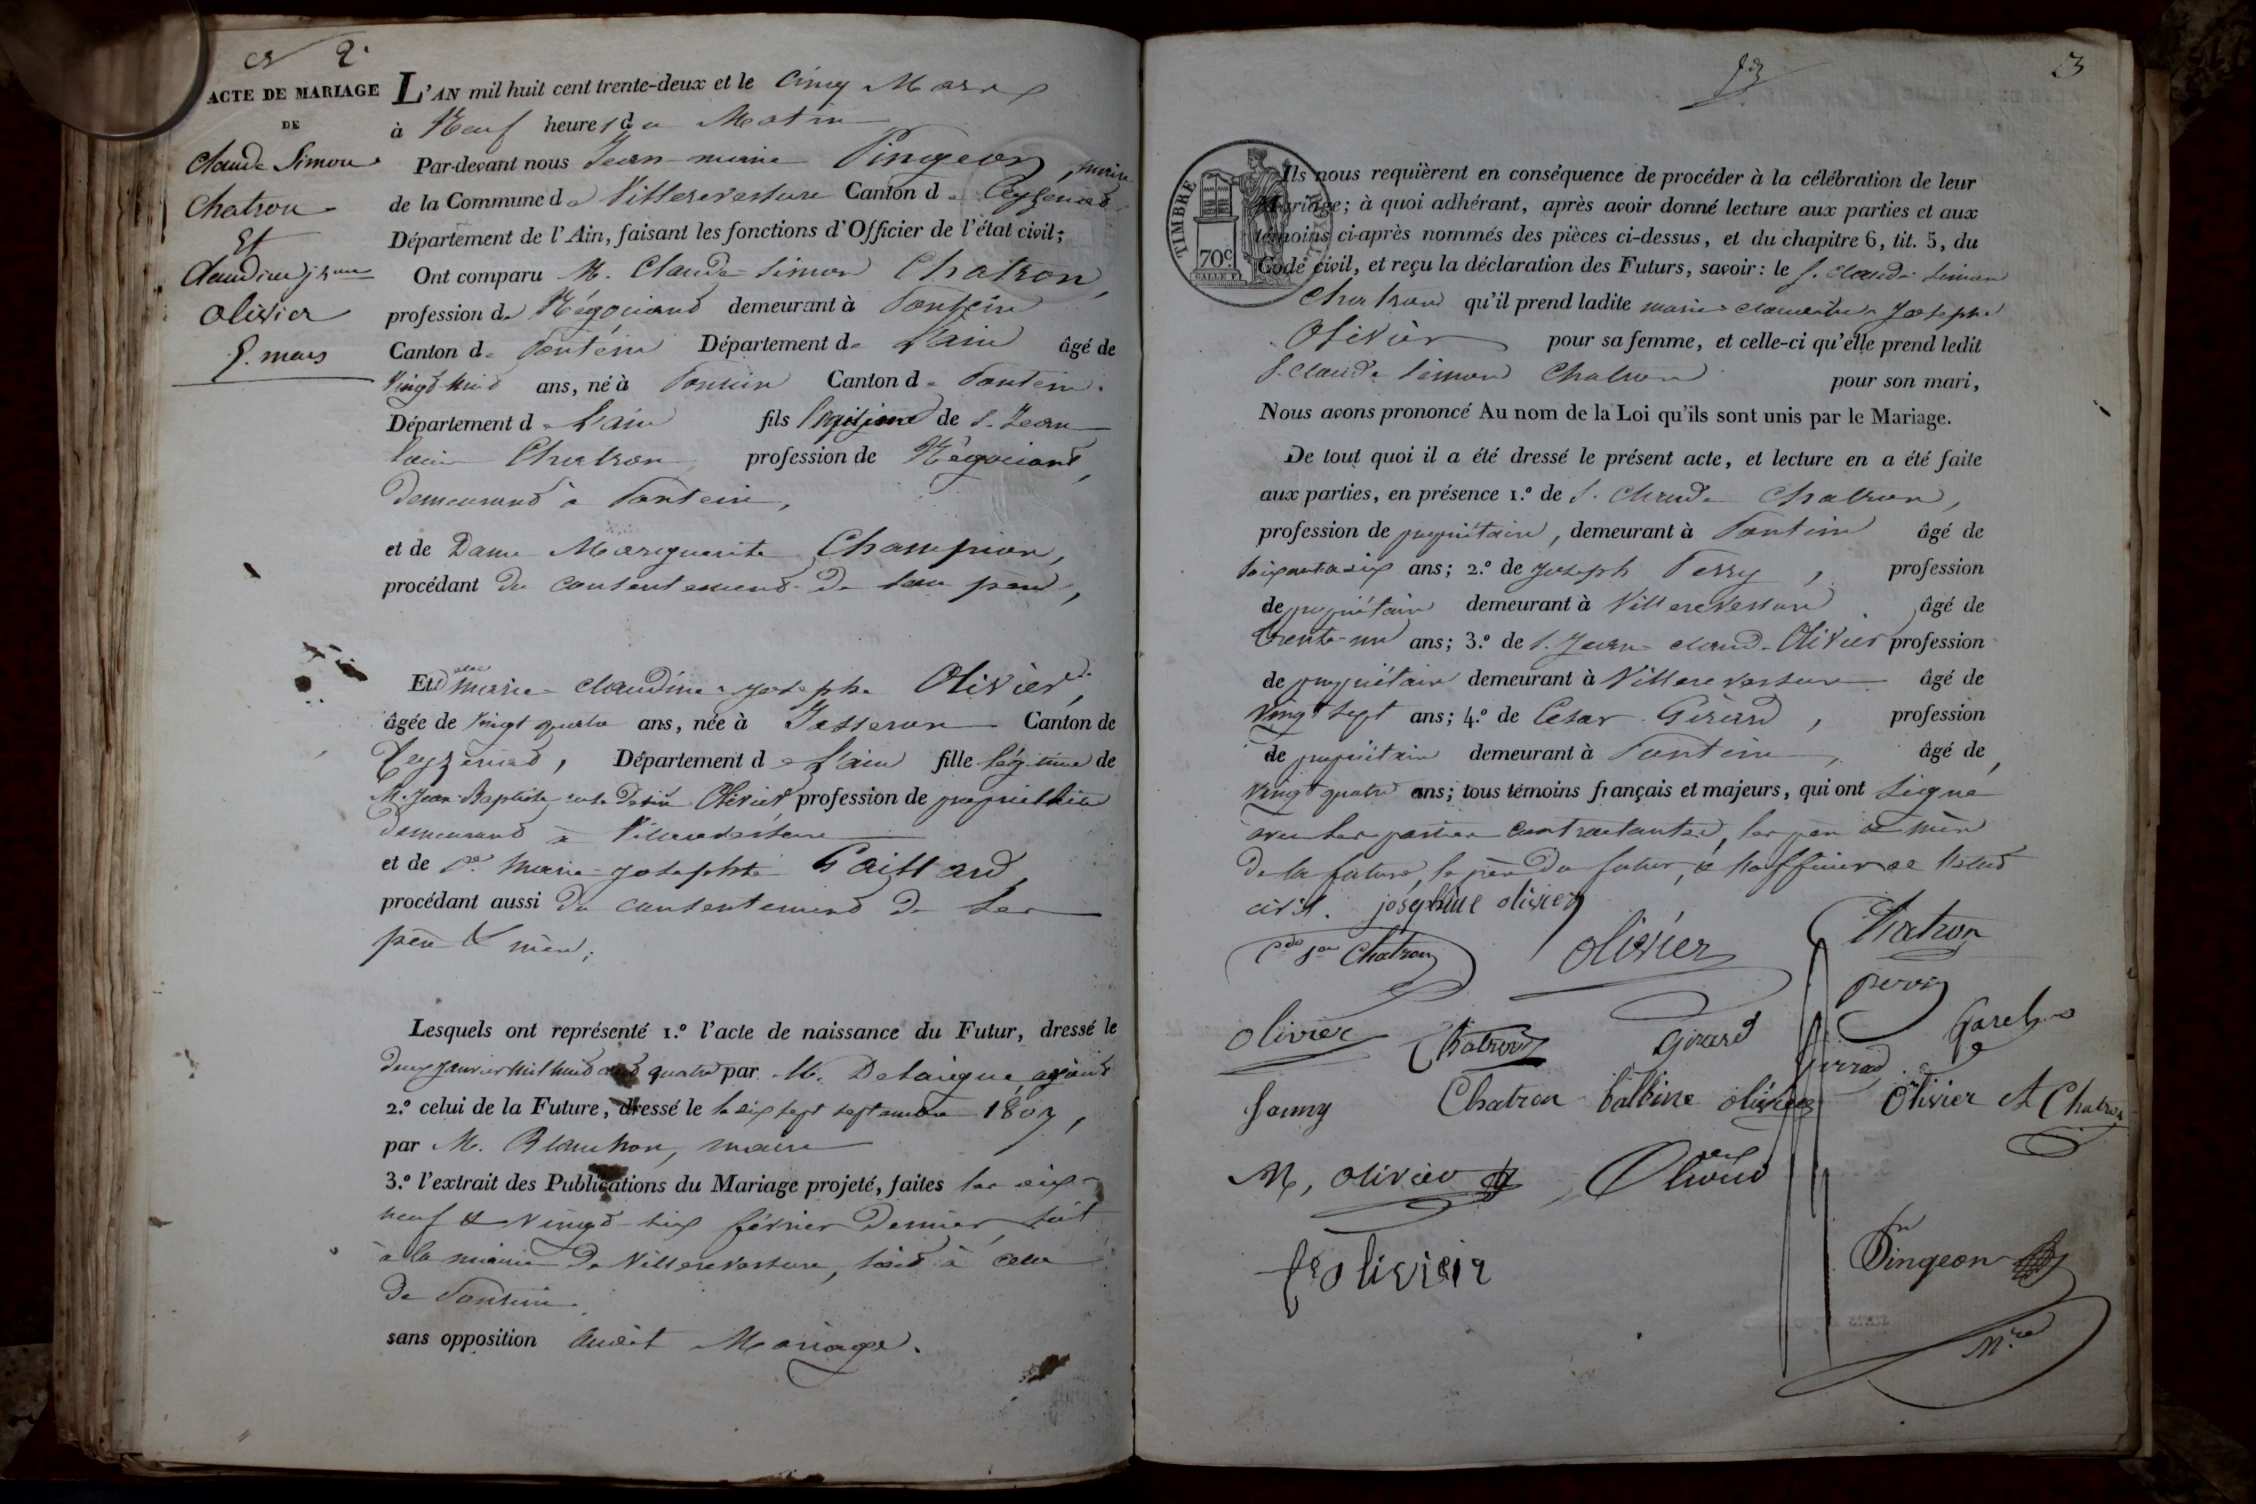 2.
ACTE DE MARIAGE
DE
Claude Simon
Chatron
Et
Claudine
Olivier
5. mars
L'AN mil huit cent trente-deux et le cinq Mars
à Neuf heures du Matin
Par-devant nous Jean-marie Pingeon, maire
de la Commune de Villereversure Canton de Ceyzeriat
Département de l'Ain, faisant les fonctions d'Officier de l'état civil;
Ont comparu M. Claude Simon Chatron,
profession de Négociant demeurant à
Canton de Département de L'ain âgé de
Vingt huit ans, né à Canton de
Département de L'ain fils légitime de S. Jean
Chatron profession de Négociant,
demeurant à
et de Dame Marguerite Champion,
procédant du consentement de son père,
Et marie-claudine-josephe Olivier,
âgée de vingt quatre ans, née à Jasseron Canton de
Ceyzeriat, Département de L'ain fille légitime de
M. Jean-Baptiste Olivier profession de propriétaire
demeurant à Villereversure
et de marie-josephte Gaillard,
procédant aussi du consentement de ses
père & mère;
Lesquels ont représenté 1.º l'acte de naissance du Futur, dressé le
deux janvier mil huit cent quatre par M. Delaigue, adjoint
2.º celui de la Future, dressé le dix sept septembre 1807,
par M. Blanchon, maire
3.º l'extrait des Publications du Mariage projeté, faites les dix-
neuf & vingt-six février dernier, soit
à la mairie de Villereversure, soit à celle
de
sans opposition audit Mariage.
3
TIMBRE
70c
Ils nous requièrent en conséquence de procéder à la célébration de leur
Mariage; à quoi adhérant, après avoir donné lecture aux parties et aux
témoins ci-après nommés des pièces ci-dessus, et du chapitre 6, tit. 5, du
Code civil, et reçu la déclaration des Futurs, savoir: le S. claude simon
Chatron qu'il prend ladite marie claudine Josephe
Olivier pour sa femme, et celle-ci qu'elle prend ledit
S. claude simon Chatron pour son mari,
Nous avons prononcé Au nom de la Loi qu'ils sont unis par le Mariage.
De tout quoi il a été dressé le présent acte, et lecture en a été faite
aux parties, en présence 1.º de S. Claude Chatron,
profession de propriétaire, demeurant à âgé de
soixante six ans; 2.º de Joseph Perry, profession
de propriétaire demeurant à Villereversure âgé de
trente-un ans; 3.º de S. Jean claude Olivier profession
de propriétaire demeurant à Villereversure âgé de
vingt sept ans; 4.º de Cesar Girard, profession
de propriétaire demeurant à âgé de,
vingt quatre ans; tous témoins français et majeurs, qui ont signé
avec les parties contractantes, les père & mère
de la future, le père du futur, & l'officier de l'état
civil. joséphine olivier
Chatron
olivier
Chatron
perry
olivier
Chatron
Girard
Girrad
fanny
Chatron
balbine olivier
Olivier et Chatron
M, olivier
Olivier
olivier
Pingeon
Mre